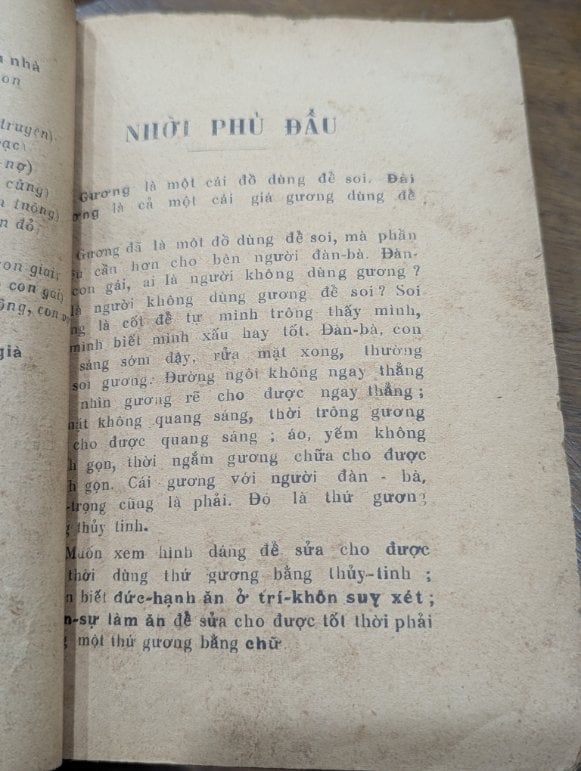 nhà
on
truyện)
nợ)
củng)
tuồng)
đỏ
con giai,
con gái,
ông, con
già
NHỜI PHỦ ĐẦU
Gương là một cái đồ dùng để soi. Đài
là cả một cái giá gương dùng để
Gương đã là một đồ dùng để soi, mà phần
cần hơn cho bên người đàn-bà. Đàn-
con gái, ai là người không dùng gương ?
là người không dùng gương để soi ? Soi
là cốt để tự mình trông thấy mình,
mình biết mình xấu hay tốt. Đàn-bà, con
sáng sớm dậy, rửa mặt xong, thường
soi gương. Đường ngôi không ngay thẳng
nhìn gương rẽ cho được ngay thẳng ;
không quang sáng, thời trông gương
cho được quang sáng ; áo, yếm không
gọn, thời ngắm gương chữa cho được
gọn. Cái gương với người đàn - bà,
-trọng cũng là phải. Đó là thứ gương
thủy tinh.
Muốn xem hình dáng để sửa cho được
thời dùng thứ gương bằng thủy-tinh ;
biết đức-hạnh ăn ở trí-khôn suy xét ;
-sự làm ăn để sửa cho được tốt thời phải
một thứ gương bằng chữ